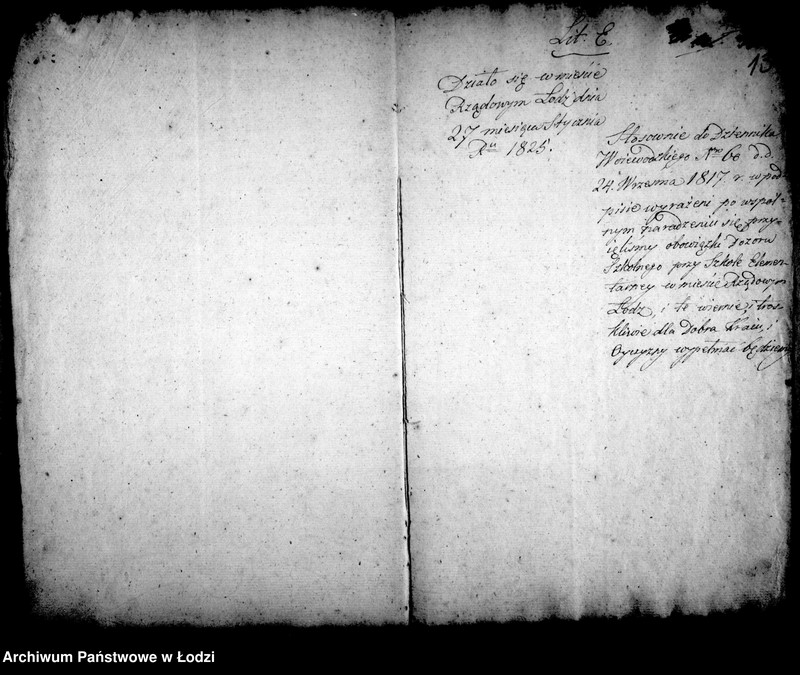 Lit. E.
13
Działo się w mieście
Rządowym Łodź dnia
27 miesiąca Stycznia
Ru 1825.
Stosownie do Dziennika
Woiewodzkiego No 60 d.d.
24. Wrzesnia 1817 r. w pod-
pisie wyrażeni po wspól-
nym naradzeniu się przy-
ięlismy obowiązki Dozoru
Szkolnego przy Szkole Elemen-
tarney w mieście Rządowym
Łodz, i te wiernie, i tros-
kliwie dla Dobra Kraiu, i
Oyczyzny wypełniać będziemy
Archiwum Państwowe w Łodzi